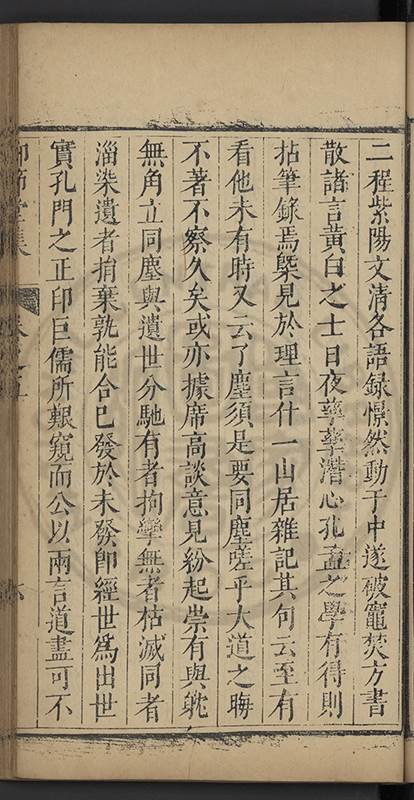 二程紫陽文清各語録憬然動于中遂破竈焚方書
散諸言黃白之士日夜孳孳潛心孔孟之學有得則
拈筆錄焉槩見於理言什一山居雜記其句云至有
看他未有時又云了塵須是要同塵嗟乎大道之晦
不著不察久矣或亦據席高談意見紛起崇有與躭
無角立同塵與遺世分馳有者拘攣無者枯滅同者
淄染遺者捐棄孰能合已發於未發卽經世爲出世
實孔門之正印巨儒所艱窺而公以兩言道盡可不
仰節堂集 卷之五 六